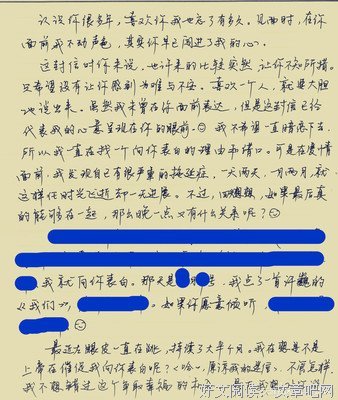 认识你很多年,喜欢你我也忘了有多久。见面时,在你
面前我不动声色,其实你早已闯进了我的心。
这封信对你来说,也许来的比较突然,让你不知所措。
只希望没有让你感到为难与不安。喜欢一个人,就要大胆
地说出来。虽然我未曾在你面前表达,但是这封信已经
代表我的心意呈现在你的眼前。我不希望一直暗恋下去,
所以我一直在找一个向你表白的理由和借口。可是在爱情
面前,我发现自己有很严重的拖延症,一天两天,一月两月,就
这样任时光飞逝却一无进展。不过,回想想,如果最后真
的能够在一起,那么晚一点又有什么关系呢?
我就向你表白。那天是
我点了首
《我们》,
。如果你愿意倾听
最近左眼皮一直在跳,持续了大半个月。我在想是不是
上帝在催促我向你表白呢?(哈,原谅我的迷信)不管怎样,
我不想错过这个争取幸福的机会
好文阅读: 文章吧网